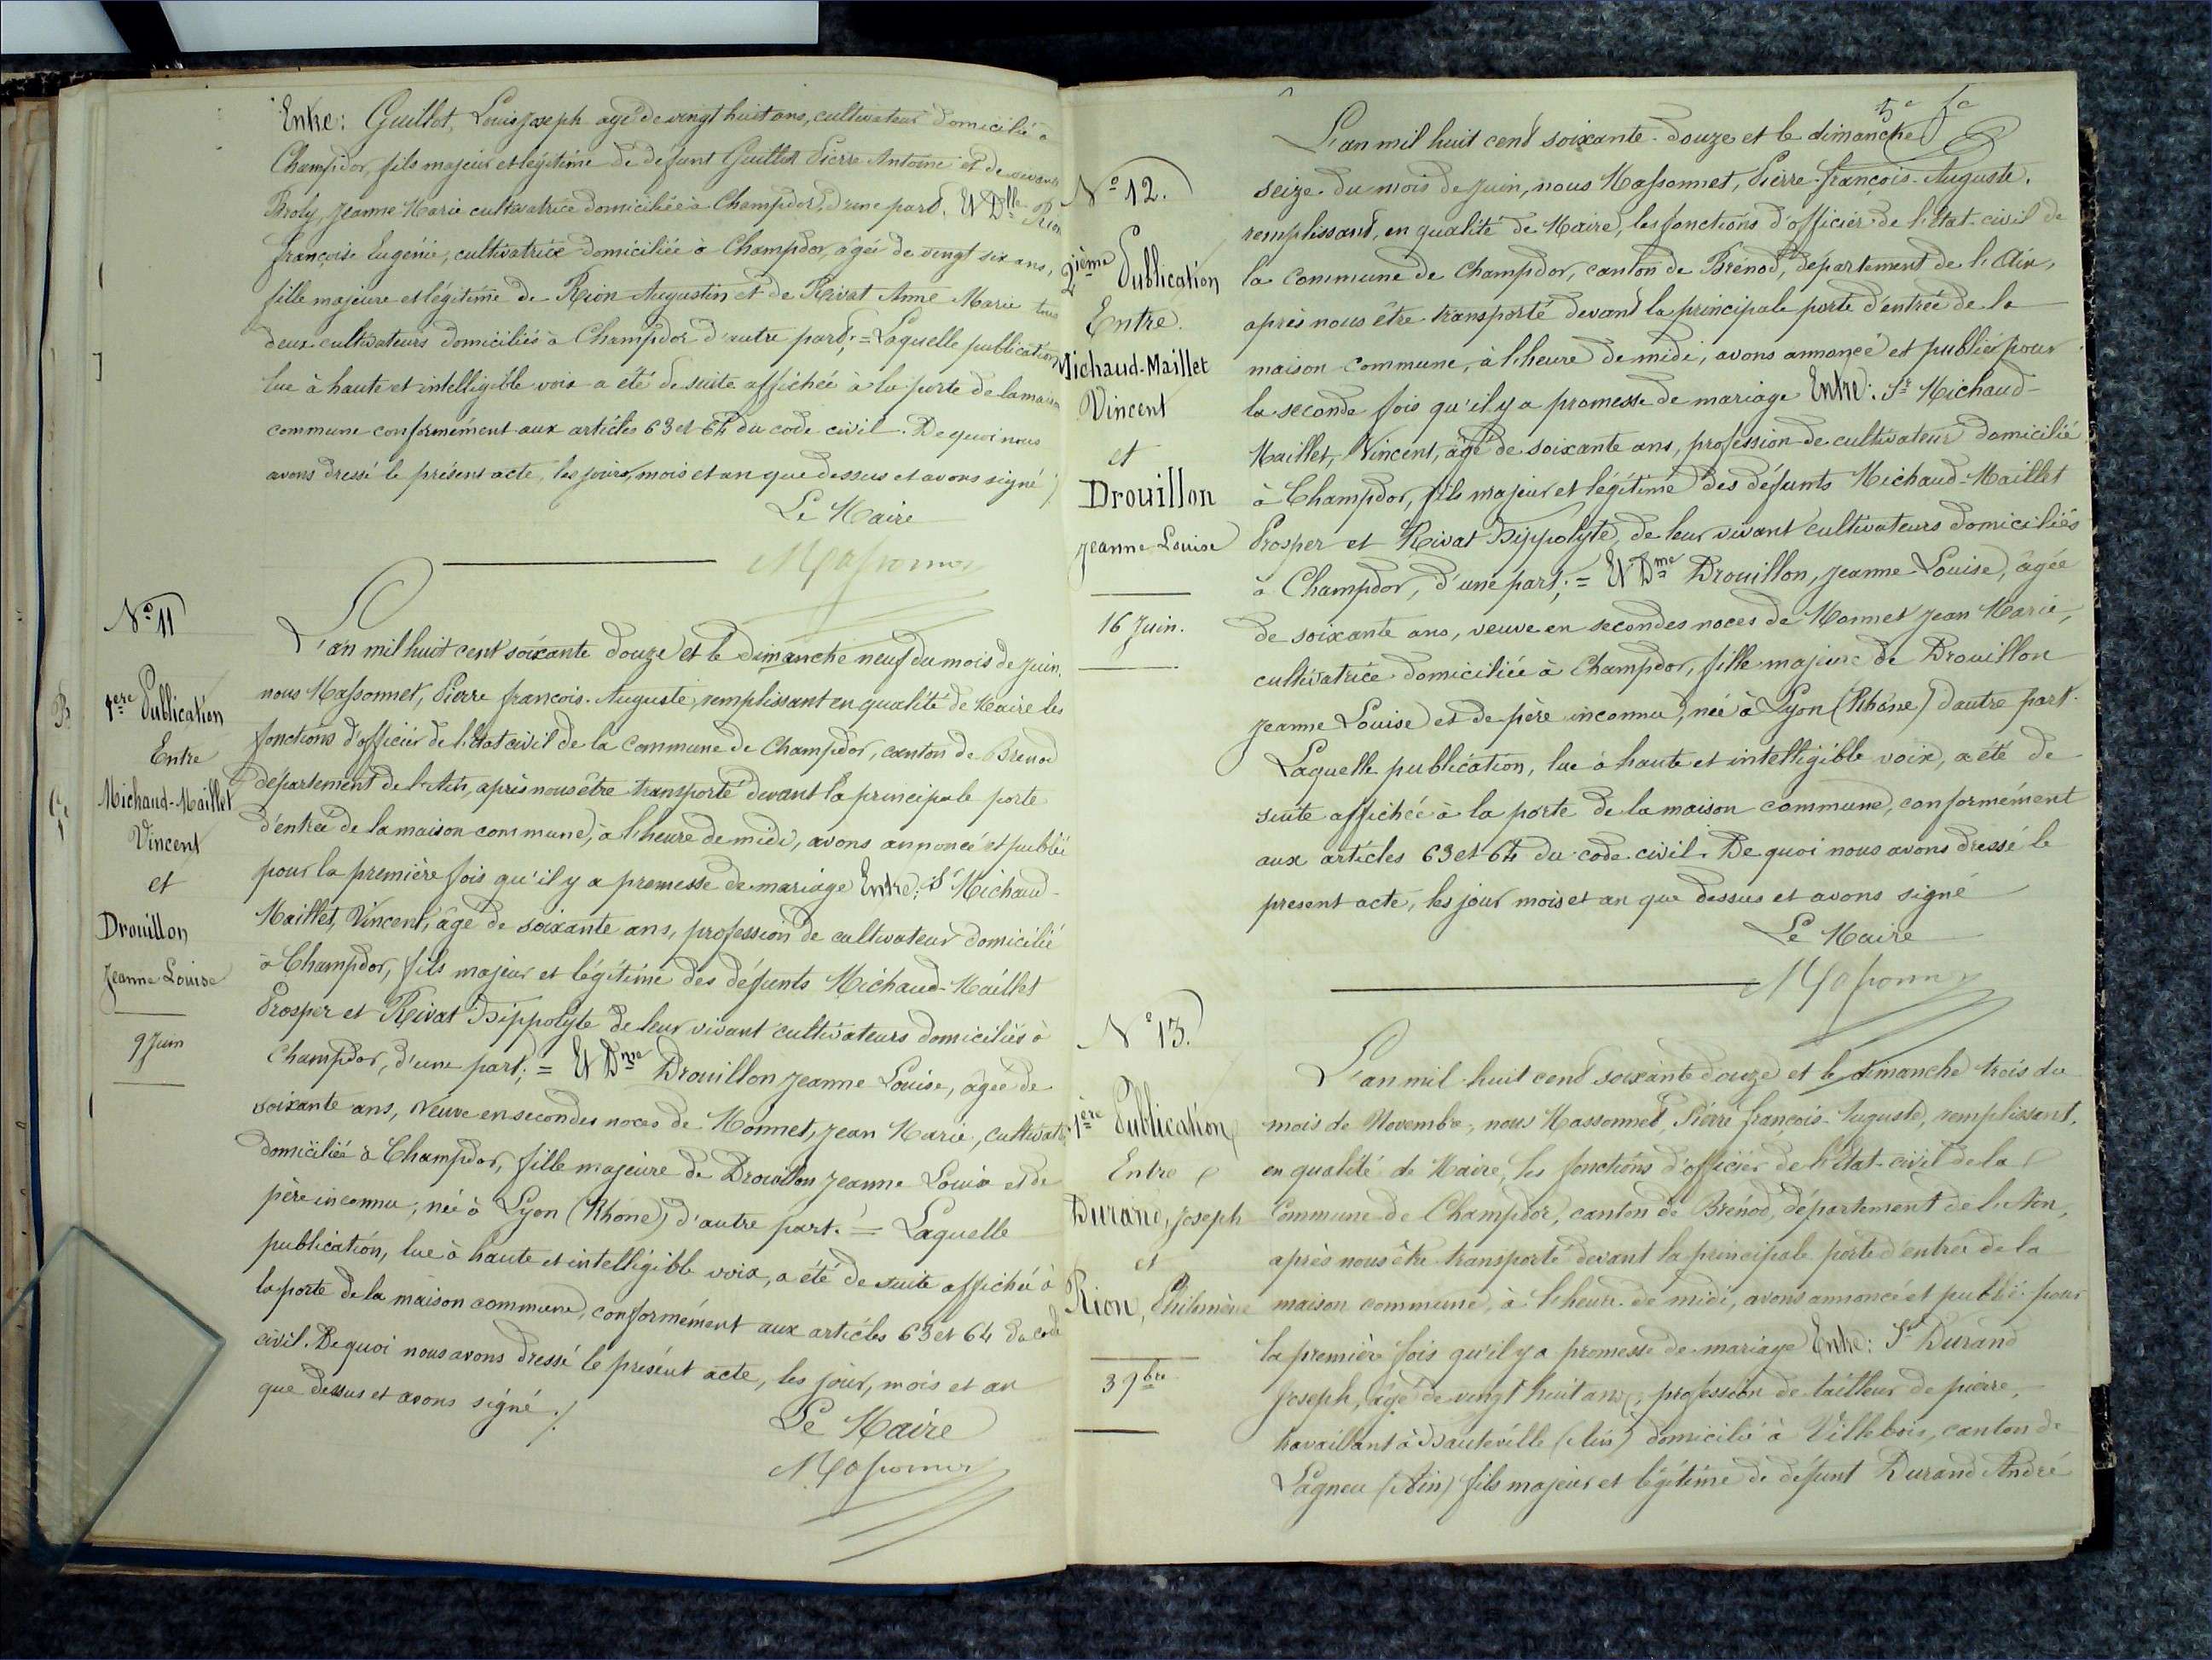 Entre: Guillot, Louis Joseph agé de vingt huit ans, cultivateur domicilié à
Champdor, fils majeur et légitime de défunt Guillot Pierre Antoine et de vivante
Broly, Jeanne Marie cultivatrice domiciliée à Champdor, d'une part. Et Dlle Rion
françoise Eugénie, cultivatrice domiciliée à Champdor, âgée de vingt six ans,
fille majeure et légitime de Rion Augustin et de Rivat Anne Marie tous
deux cultivateurs domiciliés à Champdor d'autre part; = Laquelle publication
lue à haute et intelligible voix a été de suite affichée à la porte de la maison
commune conformément aux articles 63 et 64 du code civil. De quoi nous
avons dressé le présent acte, les jour, mois et an que dessus et avons signé
Le Maire
Massonnet
N° 11
1ere Publication
Entre
Michaud-Maillet
Vincent
et
Drouillon
Jeanne Louise
9 Juin
L'an mil huit cent soixante douze et le dimanche neuf du mois de juin,
nous Massonnet, Pierre françois-Auguste, remplissant en qualité de Maire les
fonctions d'officier de l'état civil de la Commune de Champdor, canton de Brenod
département de l'Ain, après nous être transporté devant la principale porte
d'entrée de la maison commune, à l'heure de midi, avons annoncé et publié
pour la première fois qu'il y a promesse de mariage Entre: Sr Michaud-
Maillet, Vincent, âgé de soixante ans, profession de cultivateur domicilié
à Champdor, fils majeur et légitime des défunts Michaud-Maillet
Prosper et Rivat Hippolyte de leur vivant cultivateurs domiciliés à
Champdor, d'une part; = Et Dme Drouillon Jeanne Louise, âgée de
soixante ans, Veuve en secondes noces de Monnet, Jean Marie, cultivatr
domiciliée à Champdor, fille majeure de Drouillon Jeanne Louise et de
père inconnu, née à Lyon (Rhône) d'autre part. = Laquelle
publication, lue à haute et intelligible voix, a été de suite affichée à
la porte de la maison commune, conformément aux articles 63 et 64 du code
civil. De quoi nous avons dressé le présent acte, les jour, mois et an
que dessus et avons signé ./.
Le Maire
Massonnet
5e
N° 12.
2ième Publication
Entre
Michaud-Maillet
Vincent
et
Drouillon
Jeanne Louise
16 Juin.
L'an mil huit cent soixante-douze et le dimanche
seize du mois de Juin, nous Massonnet, Pierre-françois-Auguste,
remplissant, en qualité de Maire, les fonctions d'officier de l'Etat-civil de
la Commune de Champdor, canton de Brénod, département de l'Ain,
après nous être transporté devant la principale porte d'entrée de la
maison commune, à l'heure de midi, avons annoncé et publié pour
la seconde fois qu'il y a promesse de mariage Entre: Sr Michaud-
Maillet, Vincent, âgé de soixante ans, profession de cultivateur domicilié
à Champdor, fils majeur et légitime des défunts Michaud-Maillet
Prosper et Rivat Hippolyte, de leur vivant cultivateurs domiciliés
à Champdor, d'une part; = Et Dme Drouillon, Jeanne-Louise, âgée
de soixante ans, veuve en secondes noces de Monnet Jean Marie,
cultivatrice domiciliée à Champdor, fille majeure de Drouillon
Jeanne Louise et de père inconnu, née à Lyon (Rhône) d'autre part.
Laquelle publication, lue à haute et intelligible voix, a été de
suite affichée à la porte de la maison commune, conformément
aux articles 63 et 64 du code civil. De quoi nous avons dressé le
présent acte, les jour mois et an que dessus et avons signé
Le Maire
Massonnet
N° 13.
1ère Publication
Entre
Durand, Joseph
et
Rion, Philomène
3 9bre
L'an mil huit cent soixante douze et le dimanche trois du
mois de Novembre, nous Massonnet, Pierre françois-Auguste, remplissant,
en qualité de Maire, les fonctions d'officier de l'Etat-civil de la
Commune de Champdor, canton de Brénod, département de l'Ain,
après nous être transporté devant la principale porte d'entrée de la
maison commune, à l'heure de midi, avons annoncé et publié pour
la première fois qu'il y a promesse de mariage Entre: Sr Durand
Joseph, âgé de vingt huit ans, profession de tailleur de pierre,
travaillant à Hauteville (Ain) domicilié à Villebois, canton de
Lagneu (Ain) fils majeur et légitime de défunt Durand André